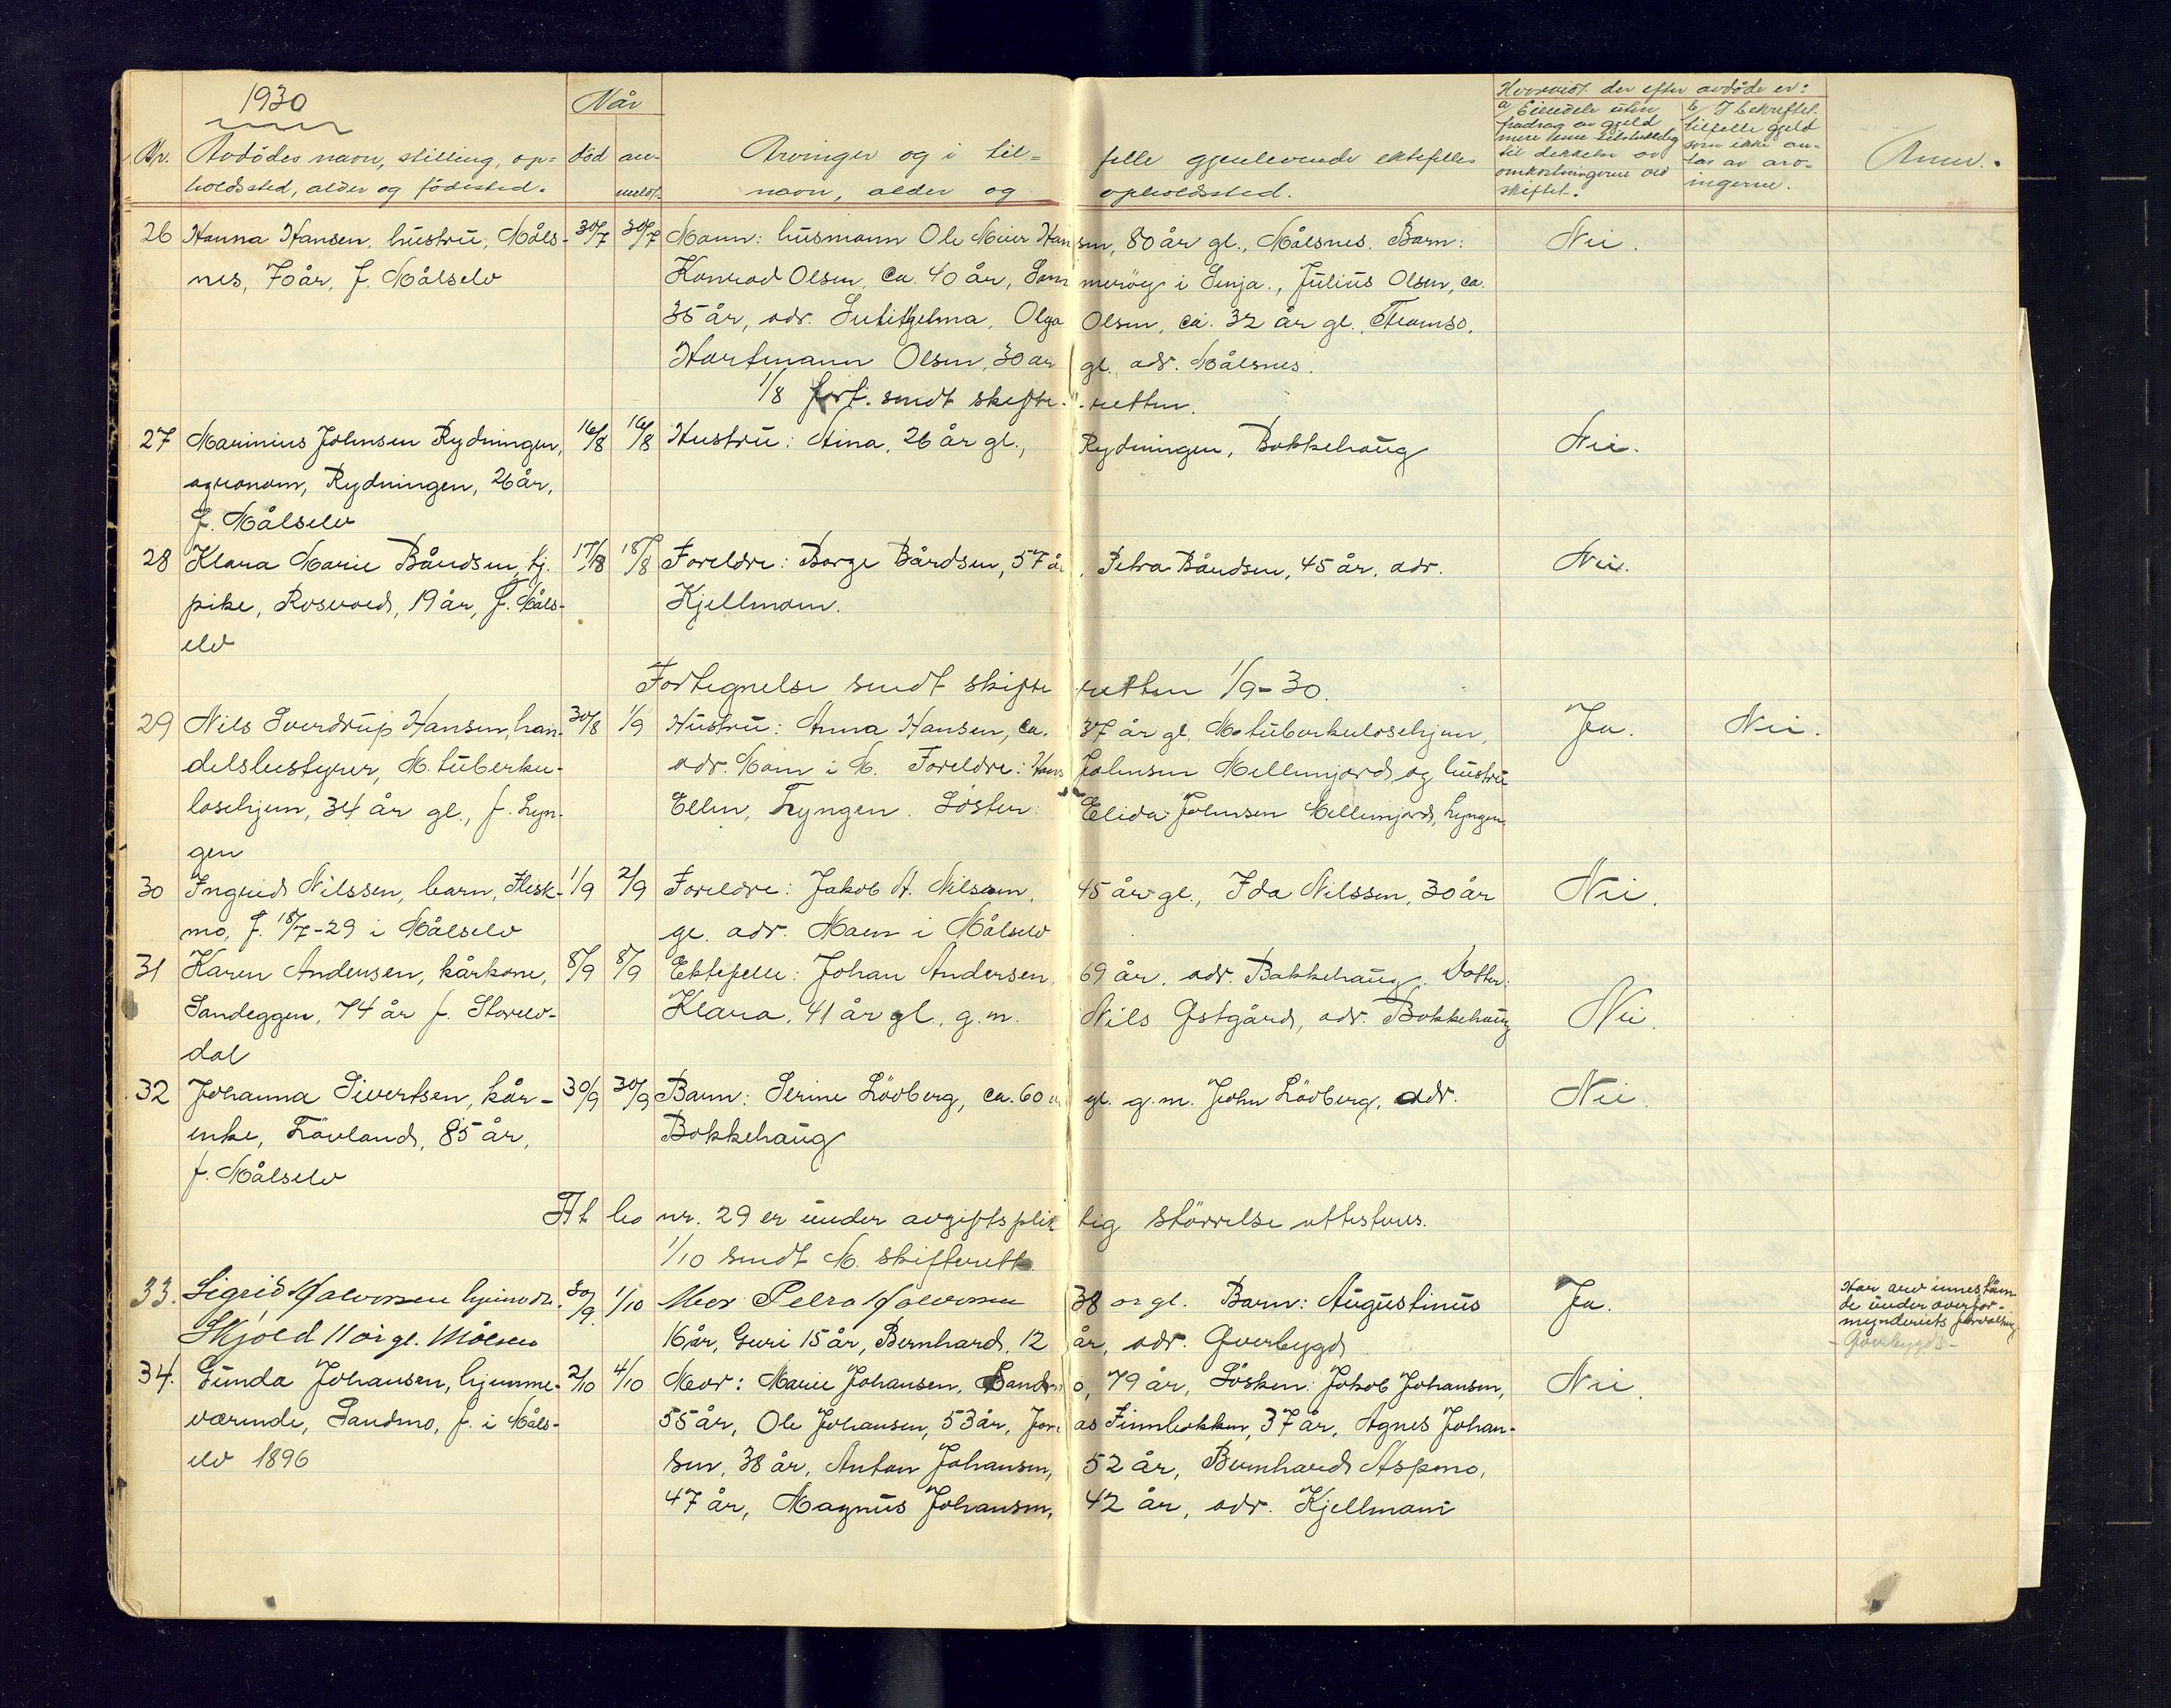 1930
Når
Hvorvidt der efter avdöde er:
Nr. Avdödes navn, stilling, op-
holdssted, alder og födested.
död
an-
meldt.
Arvinger og i til-
felle gjenlevende ektefelles
navn, alder og opholdssted.
a Eiendele uten
fradrag av gjeld
mere enn tilstrekkelig
til dekkelse av
omkostningerne ved
skiftet.
b I bekreftet.
tilfelle gjeld
som ikke an-
tas av arv-
ingerne.
Anm.
26 Hanna Hansen, hustru, Måls- 30/7 30/7 Mann: husmann Ole Meier Hansen, 80 år gl., Målsnes. Barn: Nei.
nes, 70 år, f. Målselv Konrad Olsen, ca. 40 år, Sommeröy i Senja., Julius Olsen, ca.
35 år, adr. Sulitjelma, Olga Olsen, ca. 32 år gl., Tromsö,
Hartmann Olsen, 30 år gl. adr. Målsnes.
1/8 fort. sendt skifte-retten.
27 Marinius Johnsen Rydningen, 16/8 16/8 Hustru: Nina, 26 år gl., Rydningen, Bakkehaug Nei.
agronom, Rydningen, 26 år,
f. Målselv
28 Klara Marie Bårdsen, tj. 17/8 18/8 Foreldre: Borge Bårdsen, 57 år, Petra Bårdsen, 45 år, adr. Nei.
pike, Rosvold, 19 år, f. Måls- Kjellmom.
elv
Fortegnelse sendt skifteretten 1/9-30.
29 Nils Sverdrup Hansen, han- 30/8 1/9 Hustru: Anna Hansen, ca. 37 år gl. M. tuberkulosehjem, Ja. Nei.
delsbestyrer, M. tuberku- adr. Moen i M. Foreldre: Hans Johnsen Mellemjord og hustru
losehjem, 34 år gl., f. Lyn- Ellen, Lyngen. Söster: Elida Johnsen Mellemjord, Lyngen.
gen
30 Ingrid Nilssen, barn, Flesk- 1/9 2/9 Foreldre: Jakob A. Nilssen, 45 år gl., Ida Nilssen, 30 år Nei.
mo, f. 18/7-29 i Målselv gl. adr. Moen i Målselv
31 Karen Andersen, kårkone, 8/9 8/9 Ektefelle: Johan Andersen, 69 år, adr. Bakkehaug. Datter:
Sandeggen, 74 år f. Storelv- Klara, 41 år gl., g.m. Nils Østgård, adr. Bakkehaug Nei.
dal
32 Johanna Sivertsen, kår- 30/9 30/9 Barn: Serine Lövberg, ca. 60 år gl. g.m. John Lövberg, adr. Nei.
enke, Lövland, 85 år, Bakkehaug
f. Målselv
At bo nr. 29 er under avgiftspliktig störrelse attesteres.
1/10 sendt M. skifterett.
33. Sigrid Halvorsen hjemvær. 30/9. 1/10 Mor Petra Halvorsen 38 år gl. Barn: Augustinus Ja. Har arv innestån-
de under overfor-
mynderiets forvaltning
- Överbygd -
Skjold 11 år gl. Målselv 16 år, Guri 15 år, Bernhard, 12 år, adr. Øverbygd
34. Gunda Johansen, hjemme- 2/10 4/10 Mor: Marie Johansen, Sandmo, 79 år, Lösken: Jakob Johansen, Nei.
værende, Sandmo, f. i Måls- 55 år, Ole Johansen, 53 år, Jonas Finnbakken, 37 år, Agnes Johan-
elv 1896 sen, 38 år, Anton Johansen, 52 år, Bernhard Aspmo,
47 år, Magnus Johansen, 42 år, adr. Kjellmom